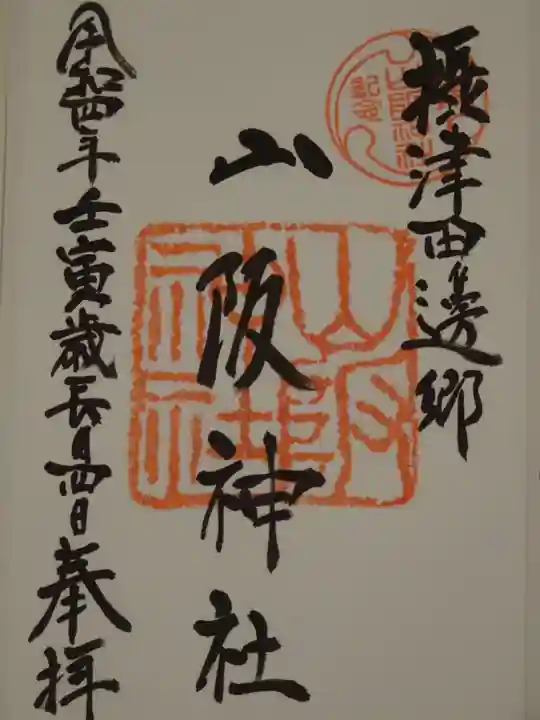 摂津田邊郷
山阪神社
令和四年壬寅歳長月四日奉拝
山阪神社